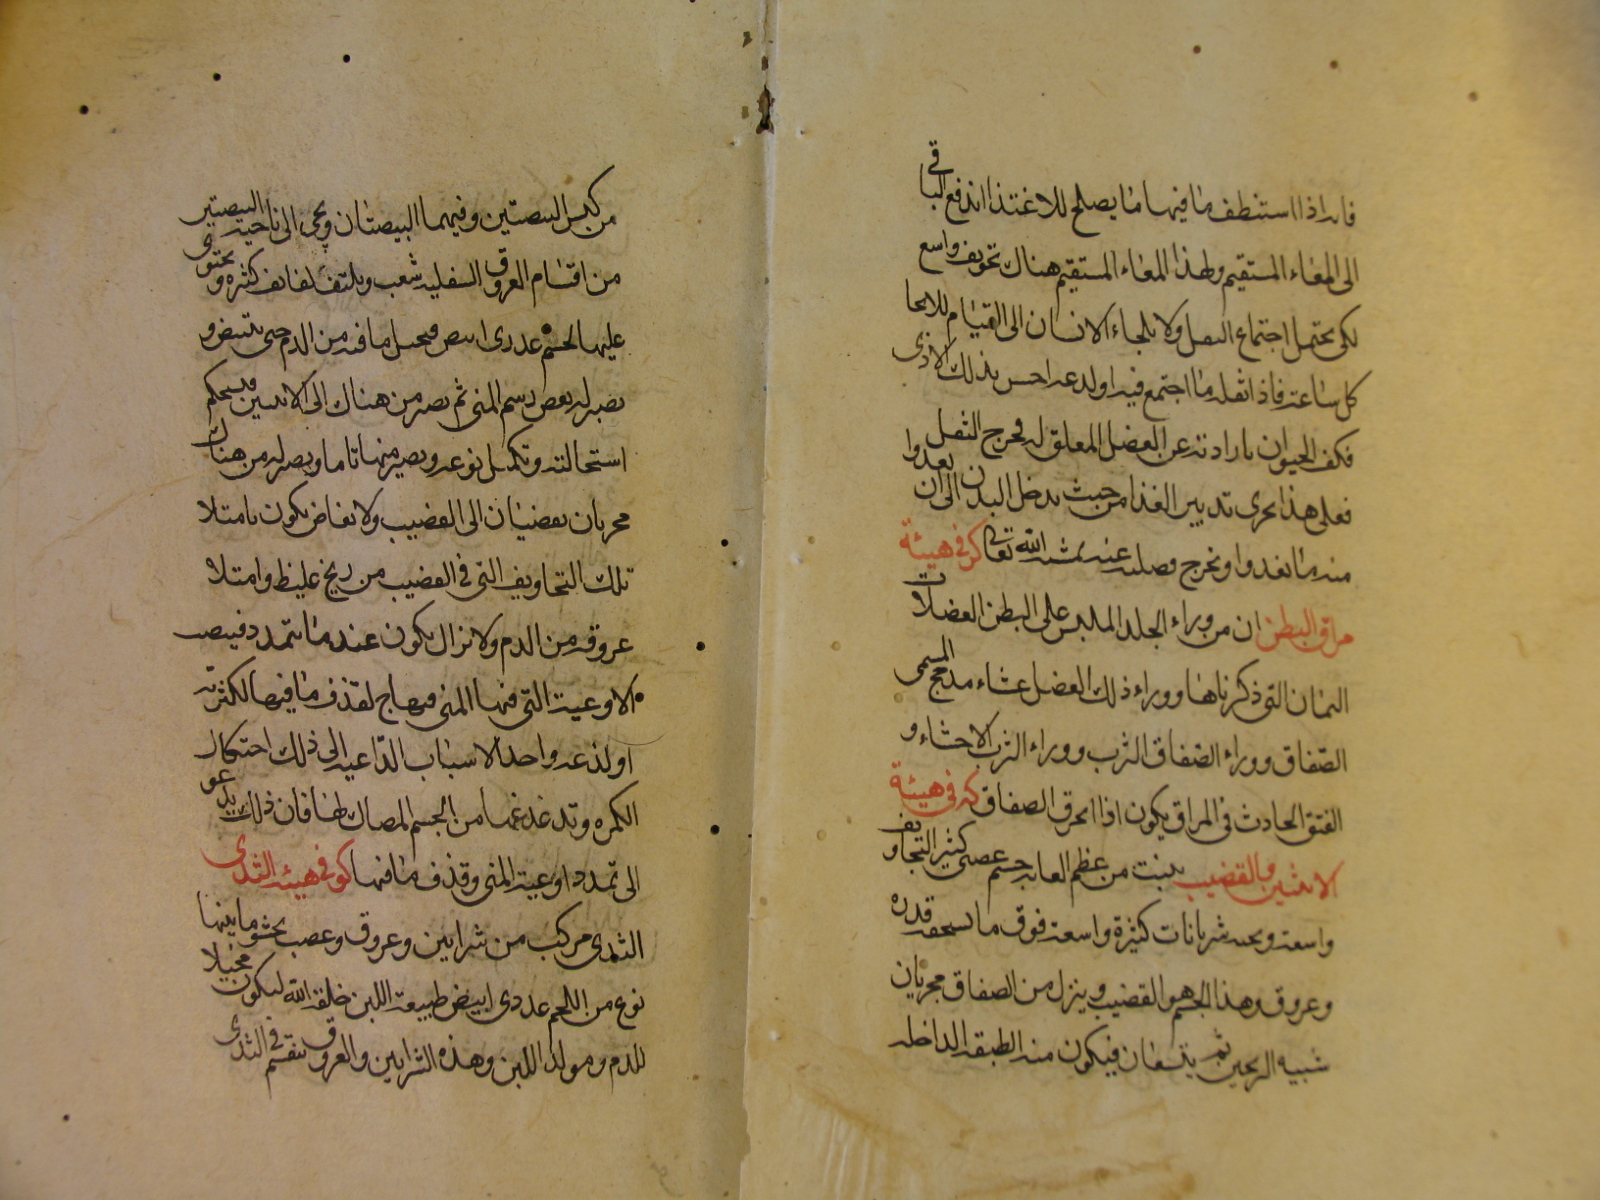 فانه اذا استنظف ما فيها مما يصلح للاغتذا اندفع الباقى
الى المعاء المستقيم ولهذا المعاء المستقيم هناك تجويف واسع
لكى يحتمل اجتماع الثفل ولا يلجاء الانسان الى القيام للابحا
كل ساعة فاذا اثقله ما اجتمع فيه اولدعه احس بذلك الاذى
فكف الحيوان بارادته عن العضل المعلق له فخرج الثفل
فعلى هذا يجرى تدبير الغذا من حيث يدخل البدن الى ان
منه ما يغدوا ويخرج فضلته عند مشية الله تعالى كز فى هيئة
مراق البطن ان من وراء الجلد الملبس على البطن العضلات
الثمان التى ذكرناها ووراء ذلك العضل غشاء مدمج المسمى
الصفاق ووراء الصفاق الثرب ووراء الثرب الاحشاء و
الفتق الحادث فى المراق يكون اذا انخرق الصفاق كه فى هيئة
الانثيين والقضيب ينبت من عظم العانه جسم عصبى كثير التجاويف
واسعة وتحته شريانات كثيرة واسعة فوق ما يستحقه قدره
وعروق وهذا الجسم هو القضيب وينزل من الصفاق مجريان
شبيه البربخين ثم يتسعان فيكون منه الطبقه الداخله
من كيس البيضتين وفيهما البيضتان ويجى الى ناحية البيضتين
من اقسام العروق السفليه شعب ويلتف لفائف كثره ويحتوى
عليها لحم غددى ابيض فيحيل ما فيه من الدم حتى يبيض و
يصير له بعض رسم المنى ثم يصير من هناك الى الانثيين فيستحكم
استحالته وتكمل نوعه ويصير منها تاما ويصير له من هناك
مجريان يفضيان الى القضيب والانعاض يكون بامتلا
تلك التجاويف التى فى القضيب من ريح غليظ وامتلا
عروقه من الدم والانزال يكون عندما يتمدد فينصب
الاوعية التى فيها المنى فيهاج لقذف ما فيها لكثرته
او لذعه واحد الاسباب الداعيه الى ذلك احتكاك
الكمره وتدغدغها من الجسم المصاك لها فان ذلك يدعو
الى تمدد اوعية المنى وقذف ما فيها كو فى هيئه الثدى
الثدى مركب من شرايين وعروق وعصب يحشو ما بينها
نوع من اللحم غددى ابيض طبيعة اللبن خلقه الله ليكون محيلا
للدم ومولد اللبن وهذه الشرايين والعروق تنقسم فى الثدى